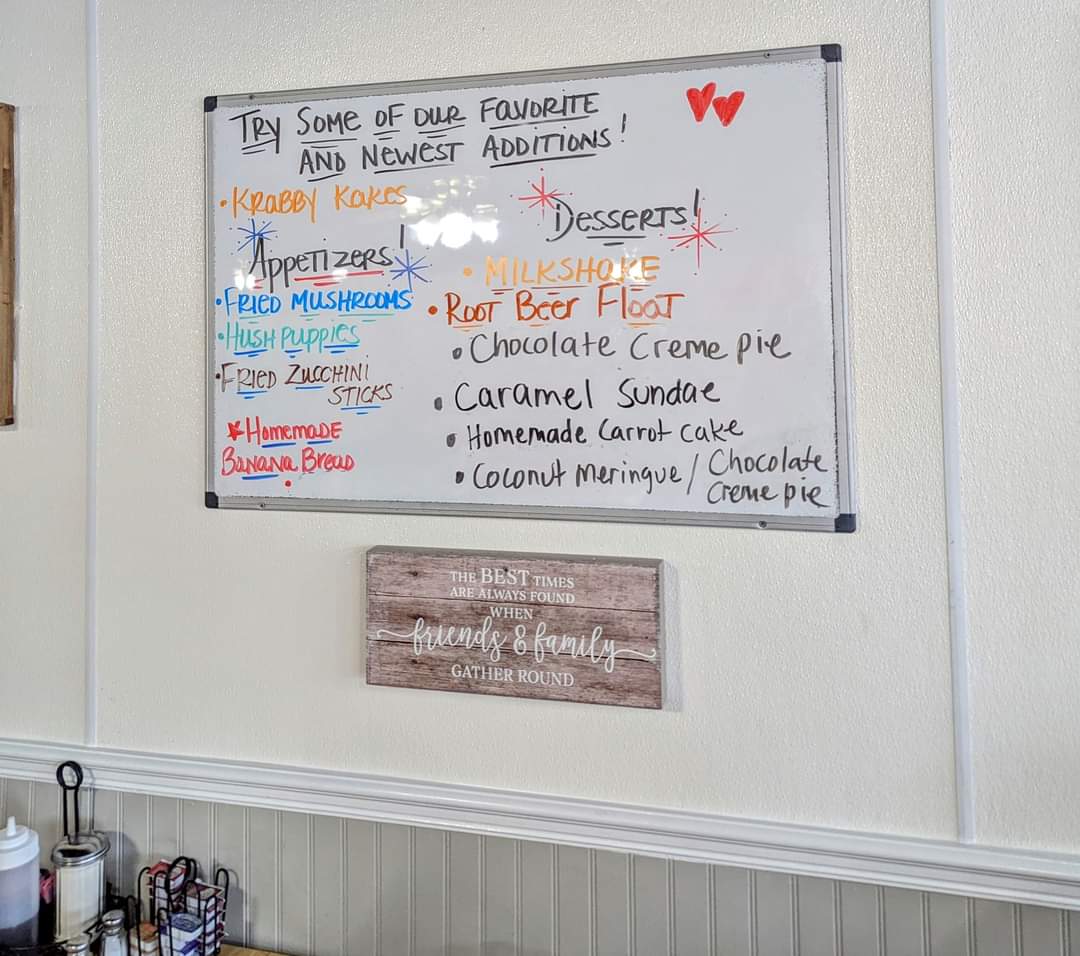 TRY SOME OF OUR FAVORITE
AND NEWEST ADDITIONS!
• KRABBY KAKES
Appetizers!
• FRIED MUSHROOMS
• HUSH PUPPIES
• FRIED ZUCCHINI
STICKS
★ Homemade
Banana Bread
Desserts!
• MILKSHAKE
• ROOT Beer Float
• Chocolate Creme pie
• Caramel Sundae
• Homemade Carrot Cake
• Coconut Meringue / Chocolate
Creme pie
THE BEST TIMES
ARE ALWAYS FOUND
WHEN
friends & family
GATHER ROUND